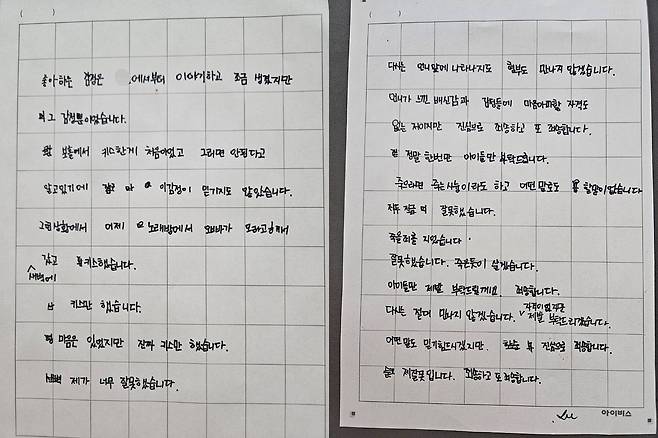 좋아하는 감정은 .에서부터 이야기하고 조금 생겼지만
그 감정뿐이었습니다.
보홀에서 키스한게 처음이었고 그러면 안된다고
알고있기에 이감정이 믿기지도 않았습니다.
그런상황에서 어제 노래방에서 오빠가 오라고해서
갔고 새벽에 키스했습니다.
키스만 했습니다.
마음은 있었지만 진짜 키스만 했습니다.
제가 너무 잘못했습니다.
다시는 언니앞에 나타나지도 형부도 만나지 않겠습니다.
언니가 느낀 배신감과 감정들에 마음아파할 자격도
없는 저이지만 진심으로 죄송하고 또 죄송합니다.
정말 한번만 아이들만 부탁드립니다.
죽으라면 죽는시늉이라도 하고 어떤 말로도 할말이없습니다
잘못했습니다.
죽을죄를 지었습니다.
잘못했습니다. 죽은듯이 살겠습니다.
아이들만 제발 부탁드릴께요. 죄송합니다.
다시는 절대 만나지 않겠습니다. 자격이없지만 제발 부탁드리겠습니다.
어떤말도 믿기힘드시겠지만. 진심으로 죄송합니다.
제잘못입니다. 죄송하고 또 죄송합니다.
아이비스